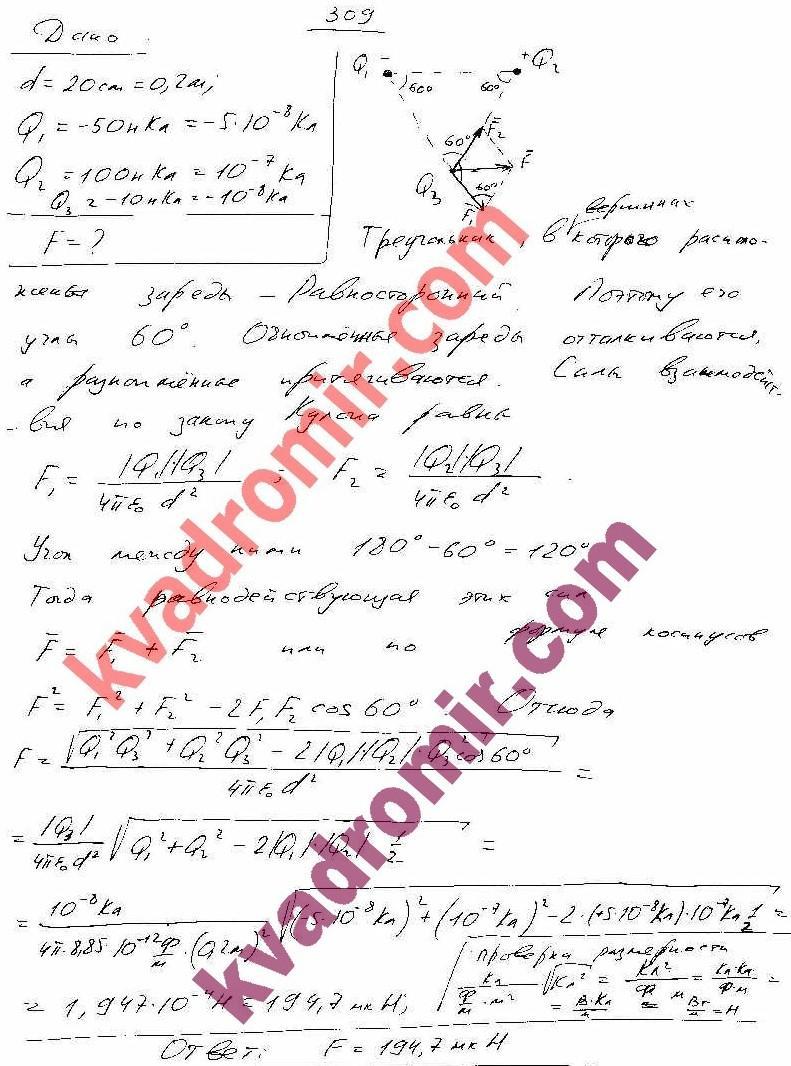 309
Дано
d = 20cm = 0,2м;
Q₁ = -50нКл = -5·10⁻⁸Кл
Q₂ = 100нКл = 10⁻⁷Кл
Q₃ = -10нКл = -10⁻⁸Кл
F = ?
Q₁ - + Q₂
60° 60°
60° F̄₂
Q₃ F̄
60°
F̄₁
вершинах
Треугольник, в которого располо-
жены заряды – Равносторонний. Поэтому его
углы 60°. Одноимённые заряды отталкиваются,
а разноимённые притягиваются. Силы взаимодейст-
-вия по закону Кулона равны
F₁ = |Q₁||Q₃| / 4πε₀ d² ; F₂ = |Q₂||Q₃| / 4πε₀ d² .
Угол между ними 180° - 60° = 120°
Тогда равнодействующая этих сил
F̄ = F̄₁ + F̄₂ или по формуле косинусов
F² = F₁² + F₂² - 2F₁F₂ cos 60°. Отсюда
F = √(Q₁²Q₃² + Q₂²Q₃² - 2|Q₁||Q₂|·Q₃² cos 60°) / 4πε₀d² =
= |Q₃| / 4πε₀d² √(Q₁² + Q₂² - 2|Q₁|·|Q₂| 1/2) =
= 10⁻⁸Кл / 4π·8,85·10⁻¹² Ф/м ·(0,2м)² √((-5·10⁻⁸Кл)² + (10⁻⁷Кл)² - 2·(+5·10⁻⁸Кл)·10⁻⁷Кл 1/2) =
= 1,947·10⁻⁴Н = 194,7 мкН;
проверка размерности
Кл / Ф/м · м² √Кл² = Кл² / Ф м = Кл·Кл / Ф·м =
= В·Кл / м = Вт / м = Н
Ответ: F = 194,7 мкН
kvadromir.com
kvadromir.com